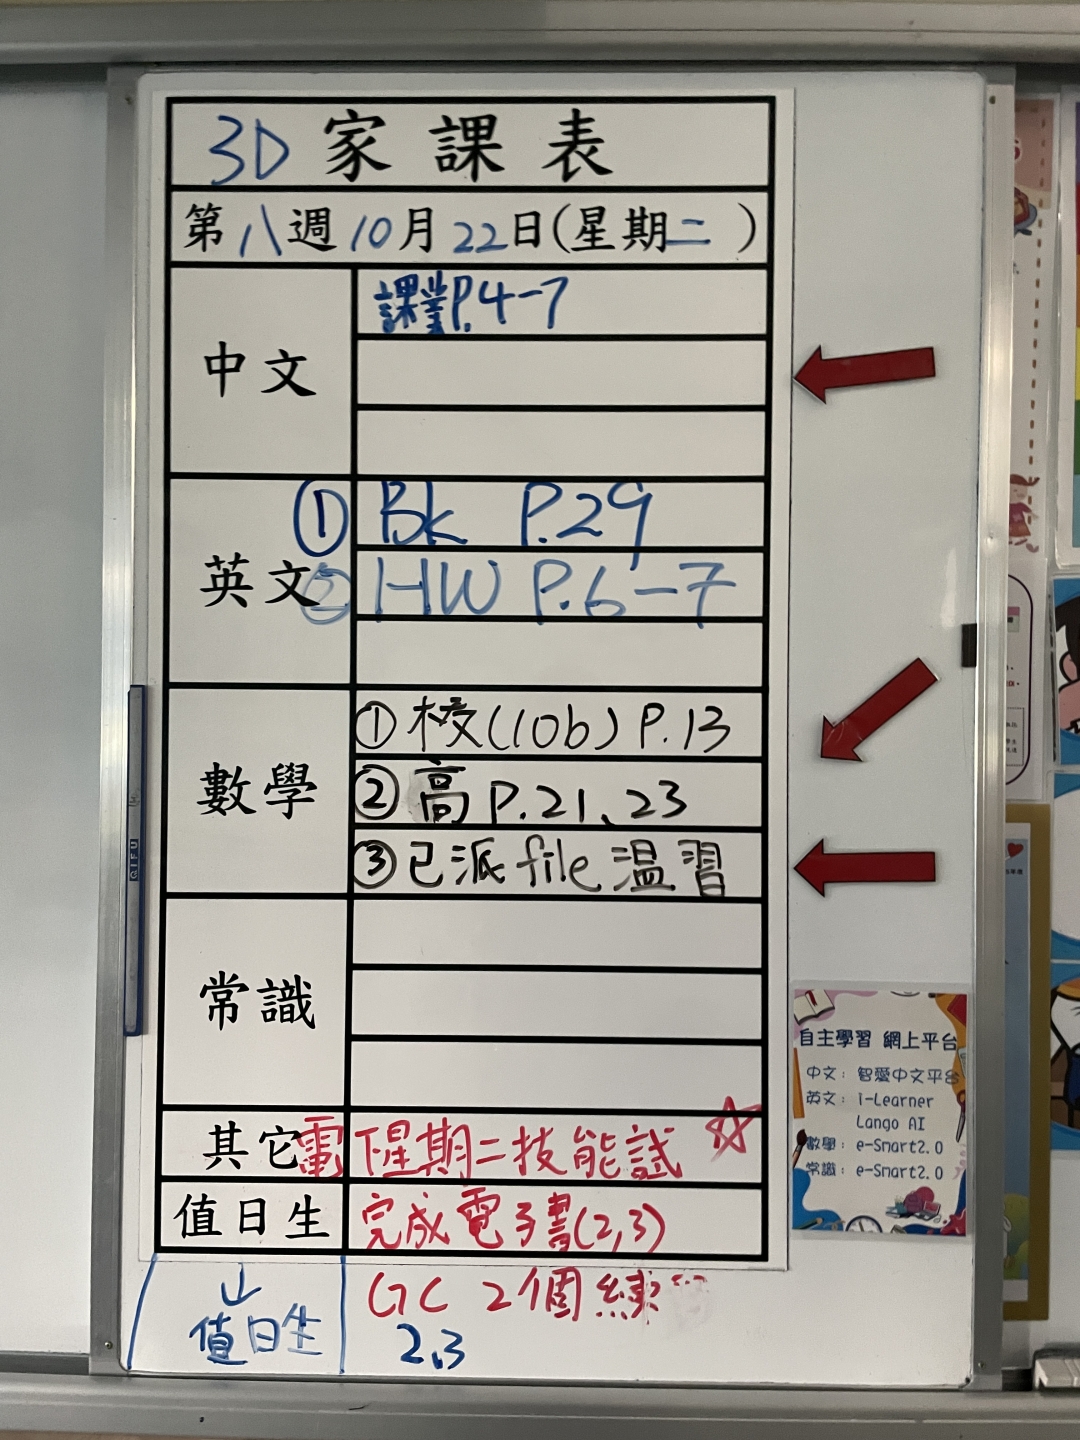 3D 家課表
第八週10月22日(星期二)
中文
課業P.4-7
英文
① Bk P.29
② HW P.6-7
數學
①校(10b) P.13
②高 P.21、23
③已派file溫習
常識
其它
電 下星期二技能試 ☆
值日生
完成電子書(2,3)
GC 2個練習
↓
值日生
2,3
自主學習 網上平台
中文: 智愛中文平台
英文: i-Learner
Lango AI
數學: e-Smart2.0
常識: e-Smart2.0
GIFU